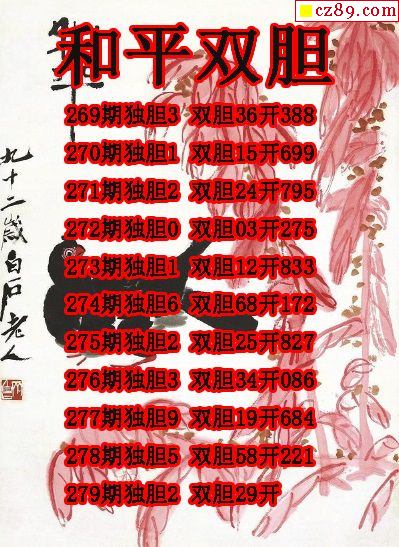 cz89.com
和平双胆
269期独胆3 双胆36开388
270期独胆1 双胆15开699
271期独胆2 双胆24开795
272期独胆0 双胆03开275
273期独胆1 双胆12开833
274期独胆6 双胆68开172
275期独胆2 双胆25开827
276期独胆3 双胆34开086
277期独胆9 双胆19开684
278期独胆5 双胆58开221
279期独胆2 双胆29开
九十二歲白石老人